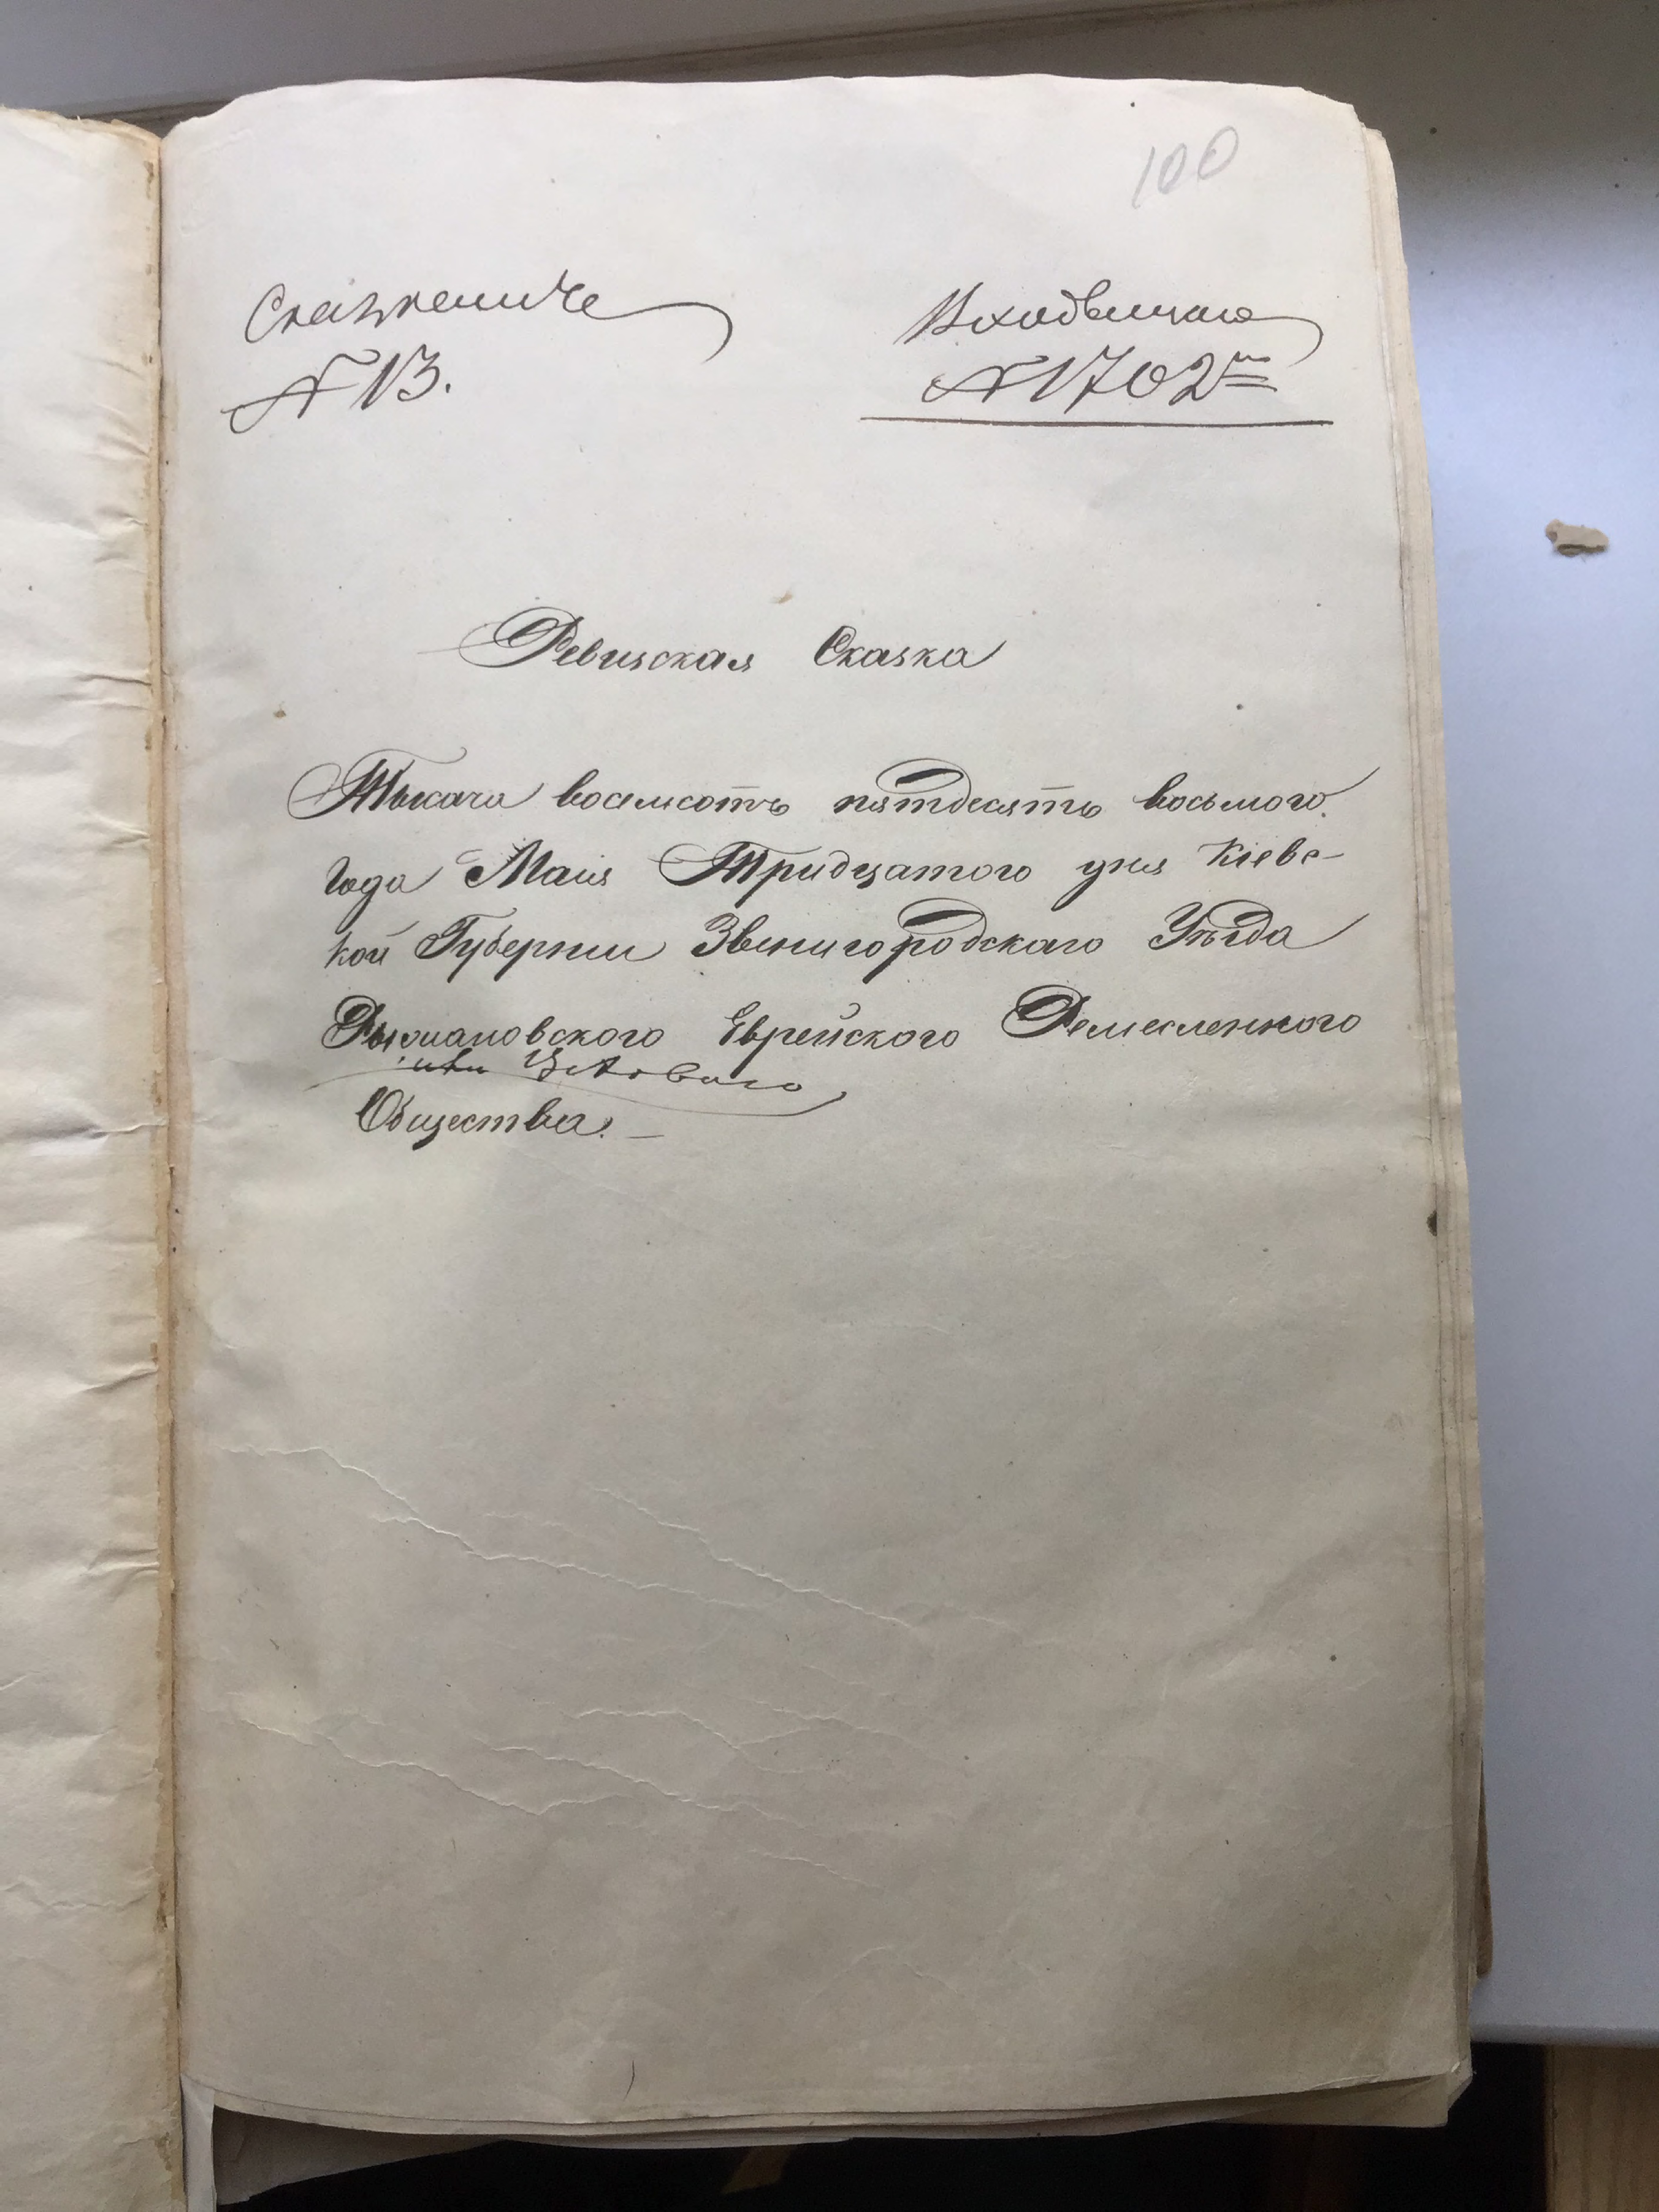 100
№ 13.
Входящаго
№ 1702
Ревизская Сказка
Тысяча восемсотъ пятдесятъ восьмого
года Маія Тридцатого дня Кіевс-
кой Губерніи Звенигородскаго Уѣзда
Рыжановского Еврейского Ремесленного
или Цеховаго
Общества. —